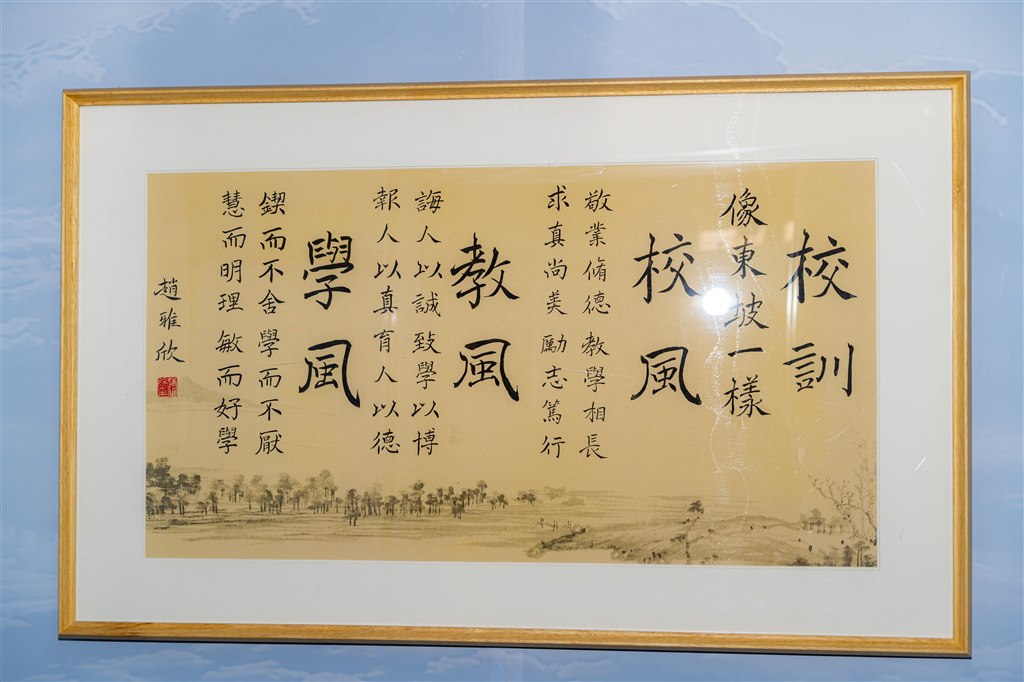 校訓
像東坡一樣
校風
敬業脩德 教學相長
求真尚美 勵志篤行
教風
誨人以誠 致學以博
報人以真 育人以德
學風
鍥而不舍 學而不厭
慧而明理 敏而好學
趙雅欣